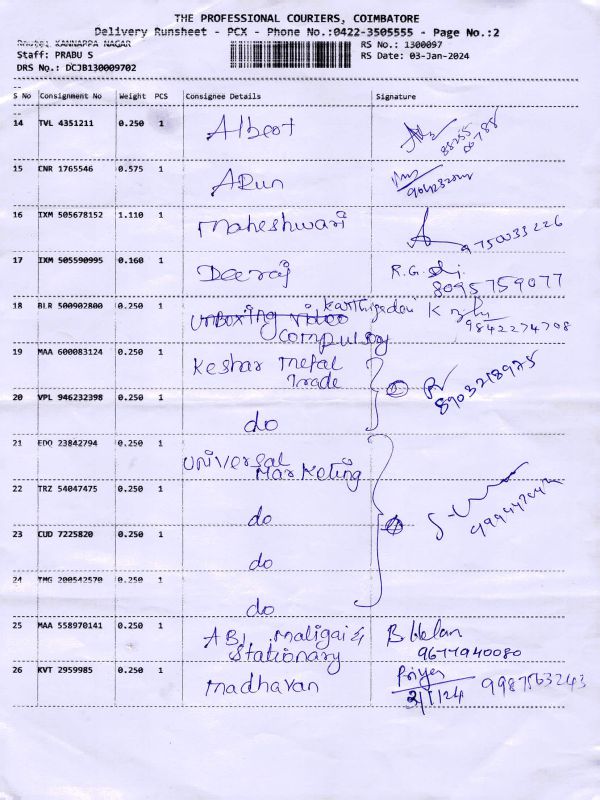 THE PROFESSIONAL COURIERS, COIMBATORE
Delivery Runsheet - PCX - Phone No.:0422-3505555 - Page No.:2
Route: KANNAPPA NAGAR
Staff: PRABU S
DRS No.: DCJB130009702
RS No.: 1300097
RS Date: 03-Jan-2024
S No Consignment No Weight PCS Consignee Details Signature
14 TVL 4351211 0.250 1 Albert
15 CNR 1765546 0.575 1 Arun
16 IXM 505678152 1.110 1 Maheshwari 9750033226
17 IXM 505590995 0.160 1 Deeraj R.G. 8095759077
18 BLR 500902800 0.250 1 Unboxing video Compulsory K 9842274708
19 MAA 600083124 0.250 1 Keshar Metal Trade 8903218975
20 VPL 946232398 0.250 1 do
21 EDO 23842794 0.250 1 Universal Marketing
22 TRZ 54047475 0.250 1 do
23 CUD 7225820 0.250 1 do
24 TMG 200542570 0.250 1 do
25 MAA 558970141 0.250 1 ABI Maligai & Stationary B 9677940080
26 KVT 2959985 0.250 1 Madhavan Priya 9987563243
3/1/24